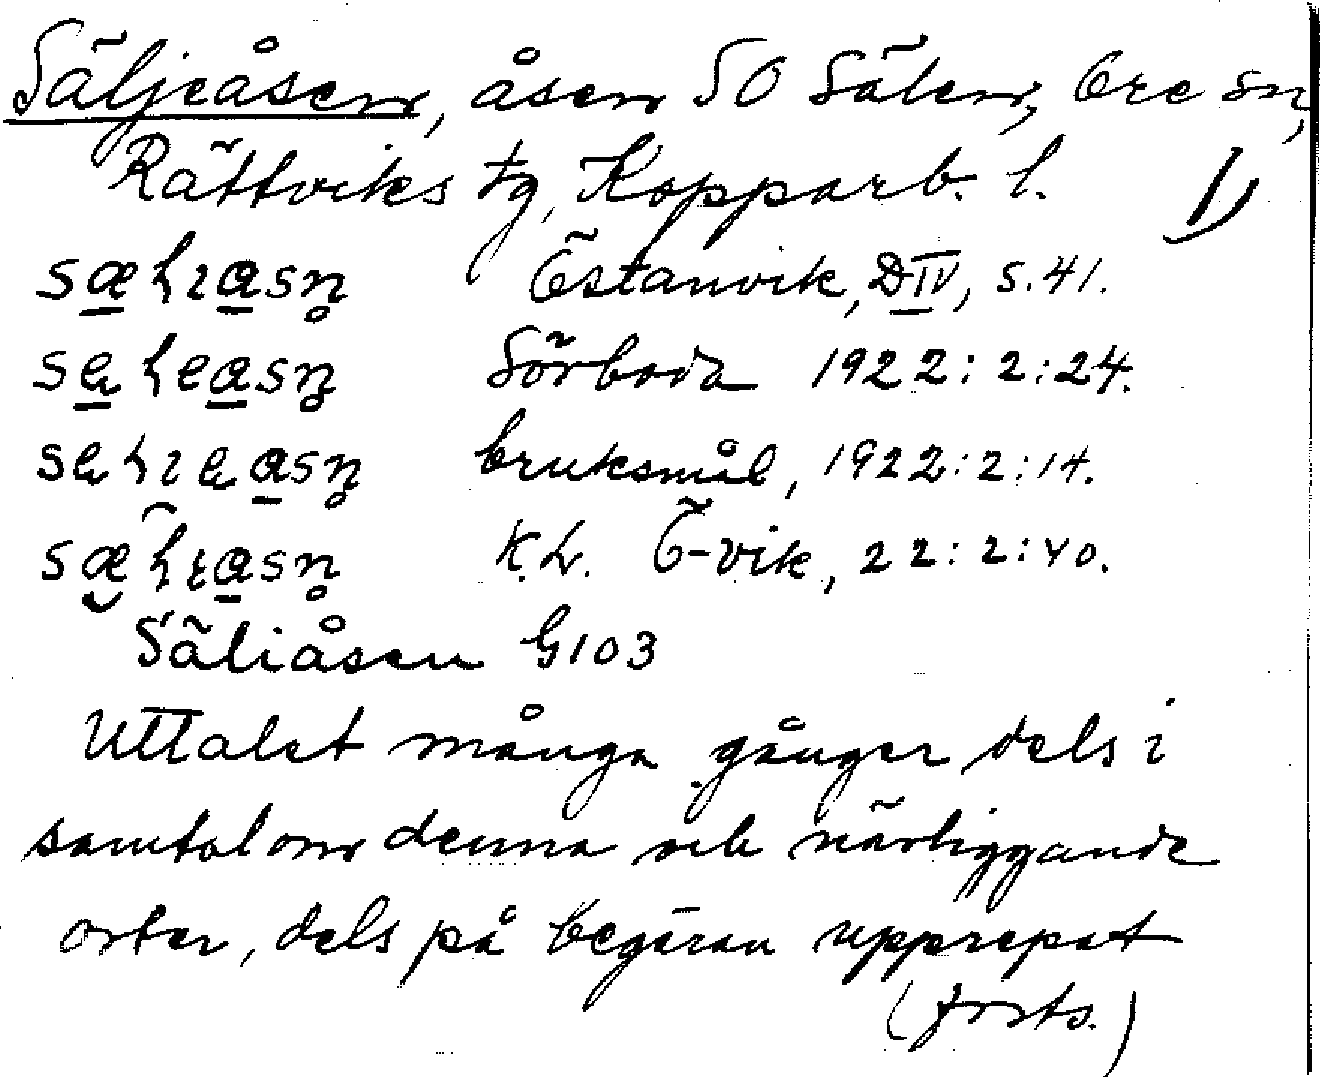 Säljeåsen, åsen SO Sälen, Ore sn,
Rättviks tg, Kopparb. l. 1)
Östanvik, D IV, s. 41.
Sörboda 1922:2:24.
bruksmål, 1922:2:14.
K.L. Ö-vik, 22:2:40.
Säliåsen G103
Uttalet många gånger dels i
samtal om denna och närliggande
orter, dels på begäran upprepat
(forts.)